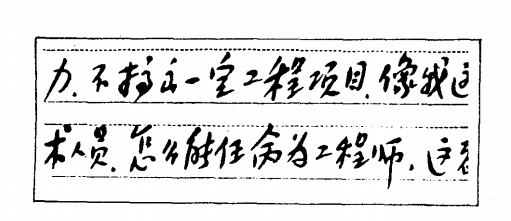 力.不搞一定工程项目.像我这
术人员.怎么能任命为工程师.这